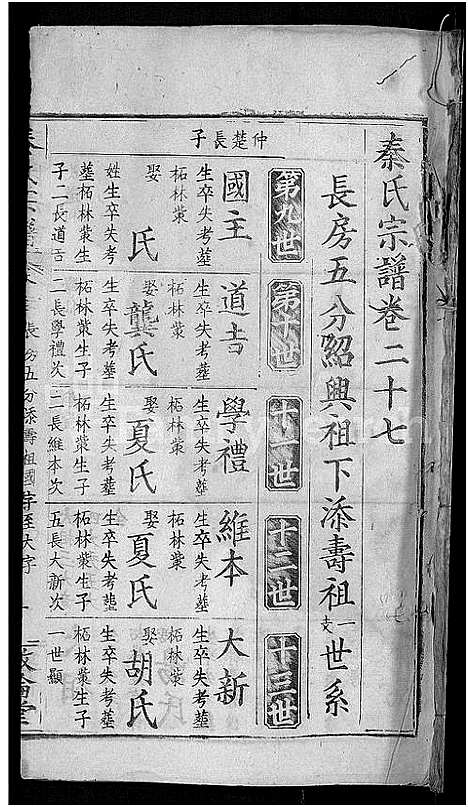 秦氏宗譜卷二十七
長房五分紹興祖下添壽祖一支世系
第九世
第十世
十一世
十二世
十三世
仲楚長子
國主
生卒失考塟
柘林藂
娶
氏
姓生卒失考
塟柘林藂生
子二長道吉
道吉
生卒失考塟
柘林藂
娶龔氏
生卒失考塟
柘林藂生子
二長學禮次
學禮
生卒失考塟
柘林藂
娶夏氏
生卒失考塟
柘林藂生子
二長維本次
維本
生卒失考塟
柘林藂
娶夏氏
生卒失考塟
柘林藂生子
五長大新次
大新
生卒失考塟
柘林藂
娶胡氏
生卒失考塟
柘林藂生子
一世顯
長房五分添壽祖國字至大字